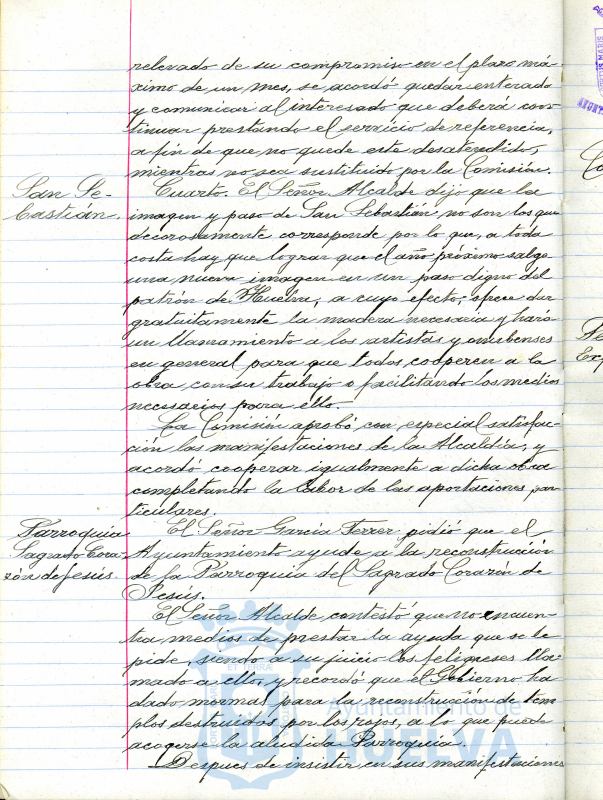 relevado de su compromiso en el plazo má-
ximo de un mes, se acordó quedar enterado
y comunicar al interesado que deberá con-
tinuar prestando el servicio de referencia,
a fin de que no quede este desatendido,
mientras no sea sustituido por la Comisión.
San Se-
bastián.
Cuarto. El Señor Alcalde dijo que la
imagen y paso de San Sebastián no son los que
decorosamente corresponde por lo que, a toda
costa hay que lograr que el año próximo salga
una nueva imagen en un paso digno del
patrón de Huelva, a cuyo efecto, ofrece dar
gratuitamente la madera necesaria y hará
un llamamiento a los artistas y onubenses
en general para que todos cooperen a la
obra con su trabajo o facilitando los medios
necesarios para ello.
La Comisión aprobó con especial satisfac-
ción las manifestaciones de la Alcaldía, y
acordó cooperar igualmente a dicha obra
completando la labor de las aportaciones par-
ticulares.
Parroquia
Sagrado Cora-
zón de Jesús.
El Señor García Ferrer pidió que el
Ayuntamiento ayude a la reconstrucción
de la Parroquia del Sagrado Corazón de
Jesús.
El Señor Alcalde, contestó que no encuen-
tra medios de prestar la ayuda que se le
pide, siendo a su juicio los feligreses lla-
mado a ello, y recordó que el Gobierno ha
dado normas para la reconstrucción de tem-
plos destruidos por los rojos, a lo que puede
acogerse la aludida Parroquia.
Despues de insistir en sus manifestaciones
Ayuntamiento de
HUELVA